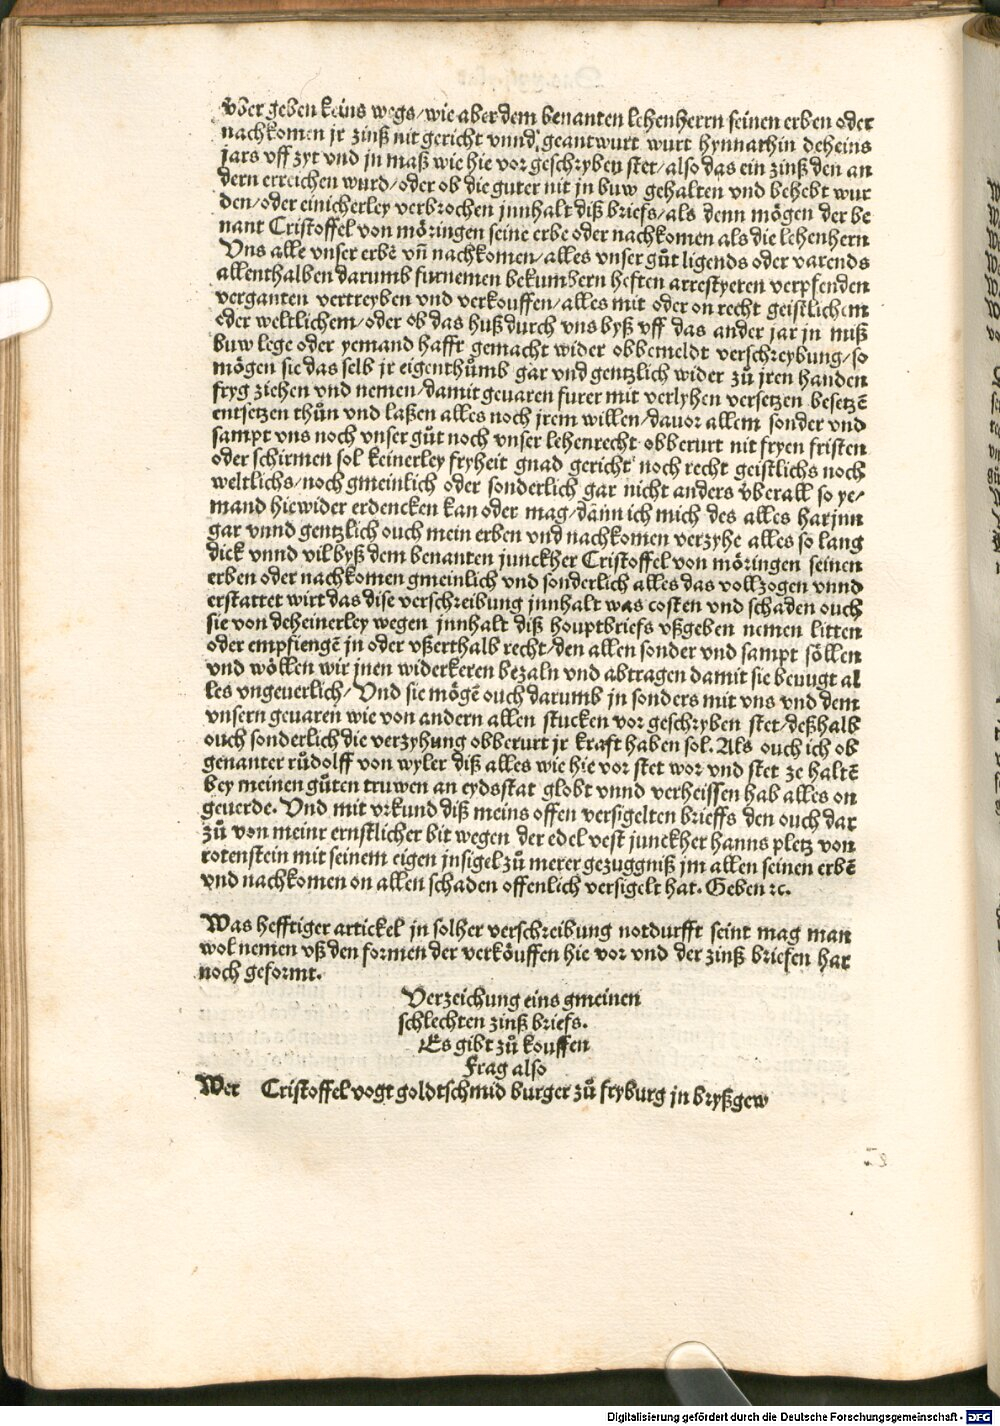 v̈ber geben keins wegs/wie aber dem benanten lehenherrn seinen erben oder
nachkomen jr zinß nit gericht vnnd geantwurt wurt hynnathin deheins
jars vff zyt vnd jn maß wie hie vor geschryben stet/also das ein zinß den an
dern erreichen wurd/oder ob die guter nit jn buw gehalten vnd behebt wur
den/oder einicherley verbrochen jnnhalt diß briefs/als denn mögen der be
nant Cristoffel von möringen seine erbe oder nachkomen als die lehenhern
Vns alle vnser erbẽ vñ nachkomen/alles vnser gůt ligends oder varends
allenthalben darumb furnemen bekumbern heften arrestyeren verpfenden
verganten vertreyben vnd verkouffen/alles mit oder on recht geistlichem
oder weltlichem/oder ob das huß durch vns byß vff das ander jar jn miß
buw lege oder yemand hafft gemacht wider obbemeldt verschreybung/so
mögen sie das selb jr eigenthůmb gar vnd gentzlich wider zů jren handen
fryg ziehen vnd nemen/damit geuaren furer mit verlyhen versetzen besetzẽ
entsetzen thůn vnd laßen alles noch jrem willen/dauor allem sonder vnd
sampt vns noch vnser gůt noch vnser lehenrecht obberurt nit fryen fristen
oder schirmen sol keinerley fryheit gnad gericht noch recht geistlichs noch
weltlichs/noch gmeinlich oder sonderlich gar nicht anders v̈berall so ye/
mand hiewider erdencken kan oder mag/dann ich mich des alles harjnn
gar vnnd gentzlich ouch mein erben vnd nachkomen verzyhe alles so lang
dick vnnd vil byß dem benanten junckher Cristoffel von möringen seinen
erben oder nachkomen gmeinlich vnd sonderlich alles das vollzogen vnnd
erstattet wirt das dise verschreibung jnnhalt was costen vnd schaden ouch
sie von deheinerley wegen jnnhalt diß houptbriefs vßgeben nemen litten
oder empfiengẽ jn oder vßerthalb recht/den allen sonder vnd sampt söllen
vnd wöllen wir jnen widerkeren bezaln vnd abtragen damit sie benugt al
les vngeuerlich/Vnd sie mögẽ ouch darumb jn sonders mit vns vnd dem
vnsern geuaren wie von andern allen stucken vor geschryben stet/deßhalb
ouch sonderlich die verzyhung obberurt jr kraft haben sol. Als ouch ich ob
genanter růdolff von wyler diß alles wie hie vor stet wor vnd stet ze haltẽ
bey meinen gůten truwen an eydsstat globt vnnd verheissen hab alles on
geuerde. Vnd mit vrkund diß meins offen versigelten brieffs den ouch dar
zů von meinr ernstlicher bit wegen der edel vest junckher hanns pletz von
rotenstein mit seinem eigen jnsigel zů merer gezuggniß jm allen seinen erbẽ
vnd nachkomen on allen schaden offenlich versigelt hat. Geben ꝛc.
Was hefftiger artickel jn solher verschreibung notdurfft seint mag man
wol nemen vß den formen der verköuffen hie vor vnd der zinß briefen har
noch geformt.
Verzeichung eins gmeinen
schlechten zinß briefs.
Es gibt zů kouffen
Frag also
Wer Cristoffel vogt goldtschmid burger zů fryburg jn bryßgew
Digitalisierung gefördert durch die Deutsche Forschungsgemeinschaft - DFG